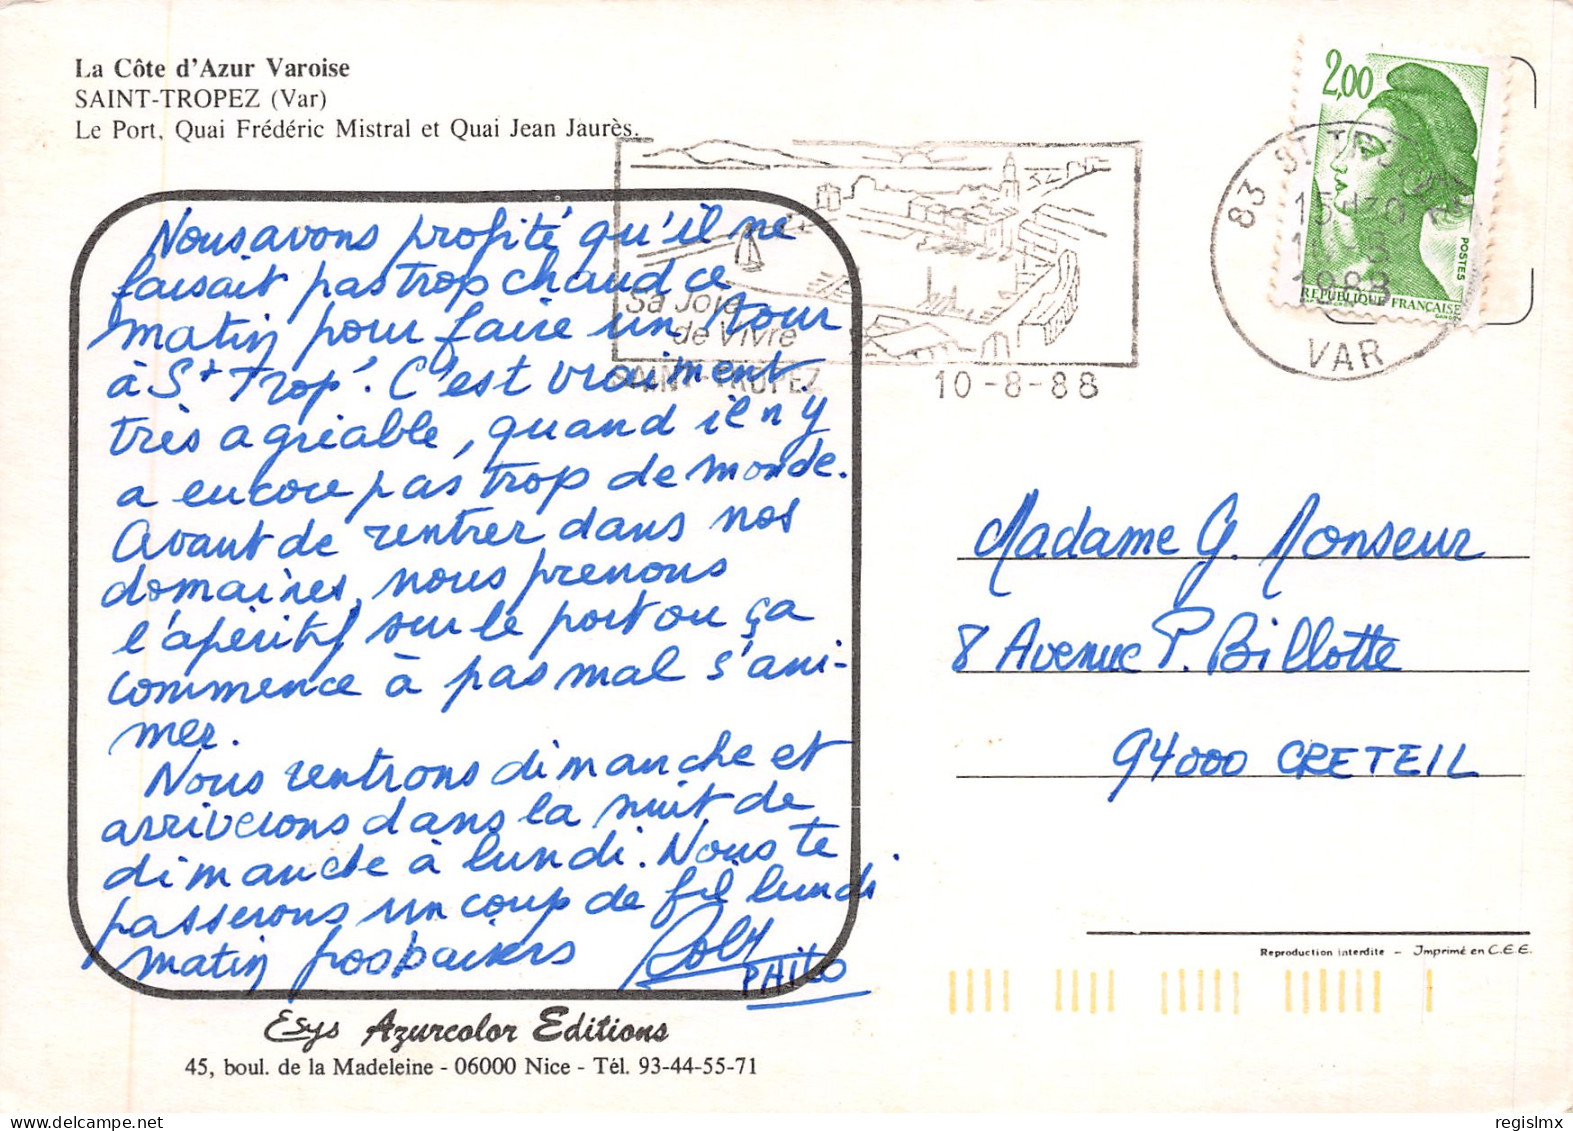 La Côte d'Azur Varoise
SAINT-TROPEZ (Var)
Le Port, Quai Frédéric Mistral et Quai Jean Jaurès.
Nous avons profité qu'il ne
faisait pas trop chaud ce
matin pour faire un tour
à St Trop'. C'est vraiment
très agréable, quand il n'y
a encore pas trop de monde.
Avant de rentrer dans nos
domaines, nous prenons
l'apéritif sur le port ou ça
commence à pas mal s'ani-
mer.
Nous rentrons dimanche et
arriverons dans la nuit de
dimanche à lundi. Nous te
passerons un coup de fil lundi
matin
PHILO
Esys Azurcolor Editions
45, boul. de la Madeleine - 06000 Nice - Tél. 93-44-55-71
Sa Joie
de Vivre
SAINT-TROPEZ 10-8-88
2,00
POSTES
REPUBLIQUE FRANÇAISE
83 ST TROPEZ
1988
VAR
Madame G. Monseur
8 Avenue P. Billotte
94000 CRETEIL
Reproduction interdite - Imprimé en C.E.E.
regislmx